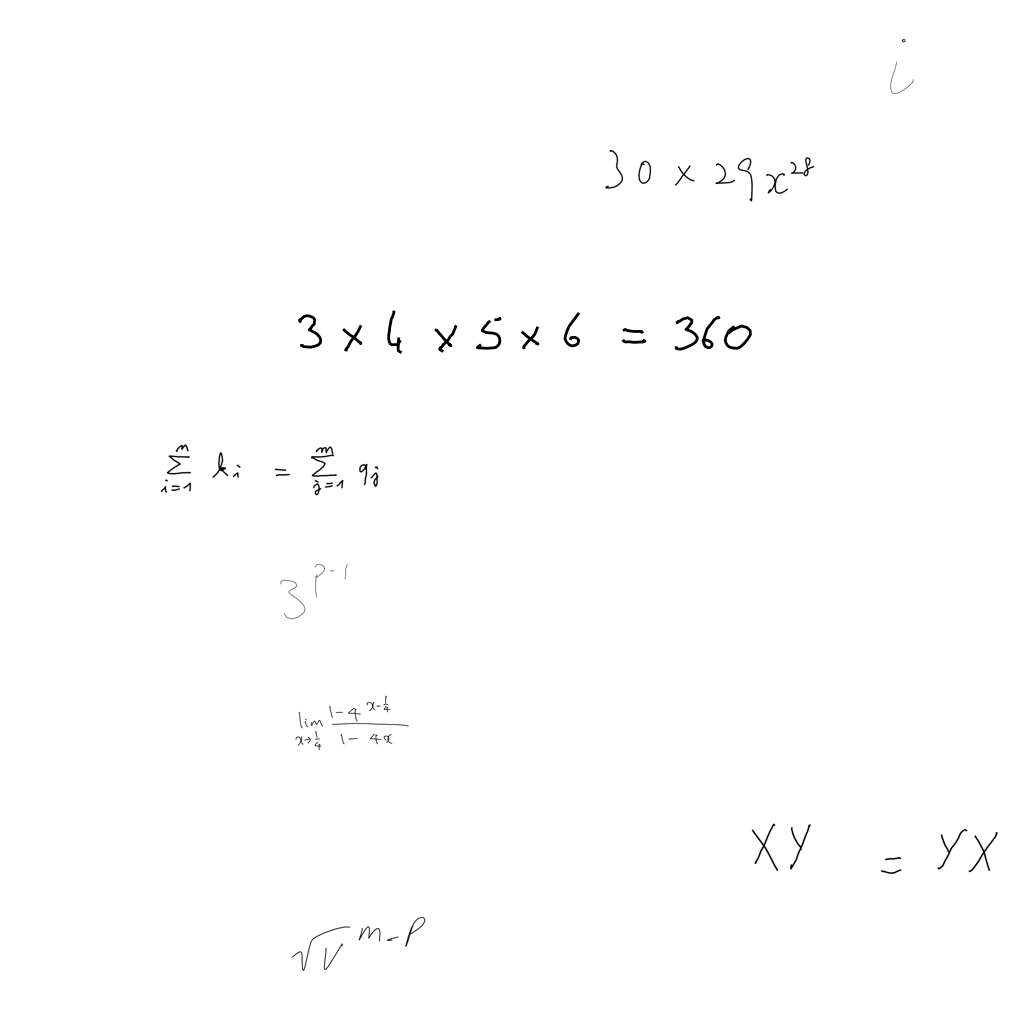 i
30 × 29x^{28}
3 × 4 × 5 × 6 = 360
\sum_{i=1}^{n} k_i = \sum_{j=1}^{m} q_j
3^{p-1}
\lim_{x \to \frac{1}{4}} \frac{1-4^{x-\frac{1}{4}}}{1-4x}
XY = YX
\sqrt{V}^{m-p}